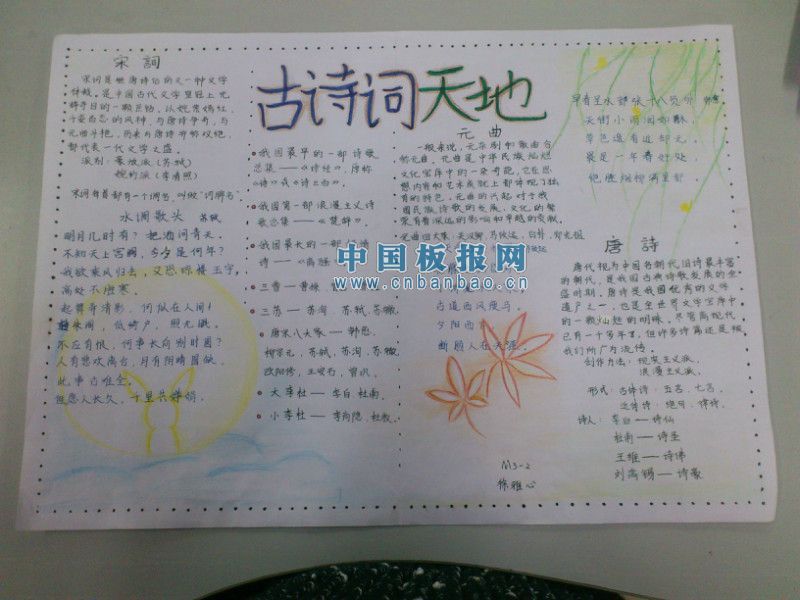 古诗词天地
宋詞
宋词是继唐诗后的又一种文学
体裁，是中国古代文学皇冠上光
辉夺目的一颗
的风神，与唐诗争奇，与
元曲斗
都代表一代文学之盛。
派别：豪放派（苏轼）
婉约派（李清照）
宋词每首都有一个调名，叫做“词牌名”
水调歌头 苏轼
明月几时有？把酒问青天。
不知天上宫阙，今夕是何年？
我欲乘风归去，又恐琼楼玉宇，
高处不胜寒。
起舞弄清影，何似在人间！
低绮户，照无眠。
不应有恨，何事长向别时圆？
人有悲欢离合，月有阴晴圆缺，
此事古难全。
但愿人长久，千里共婵娟。
我国最早的一部诗歌
总集——《诗经》，原称
《诗》或《诗三百》。
我国第一部浪漫主义诗
歌总集——《楚辞》。
我国最长的一部
诗——《离骚
三曹——曹操
三苏——苏洵、苏轼、苏辙
唐宋八大家——韩愈，
柳宗元，苏轼，苏洵，苏辙，
欧阳修，王安石，曾巩。
大李杜——李白 杜甫。
小李杜——李商隐、杜牧。
元曲
一般来说，元杂剧和散曲合
称元曲。元曲是中华民族灿烂
文化宝库中的一朵奇葩，它在思
想内容和艺术成就上都体现了独
有的特色。元曲的兴起对于我
国民族诗歌的发展、文化的繁
荣有着深远的影响和卓越的贡献。
元曲四大家：关汉卿、马致远、白朴、郑光祖
古道西风瘦马。
夕阳西
断肠人在天涯
早春呈水部张十八员外 韩愈
天街小雨润如酥，
草色遥看近却无。
最是一年春好处，
绝胜烟柳满皇都。
唐詩
唐代被视为中国各朝代旧诗最丰富
的朝代，是我国古典诗歌发展的全
盛时期。唐诗是我国优秀的文学
遗产之一，也是全世界文学宝库中
的一颗灿烂的明珠。尽管离现代
已有一千多年了，但许多诗篇还是被
我们所广为流传。
创作方法：现实主义派，
浪漫主义派。
形式：古体诗：五言，七言，
近体诗：绝句，律诗。
诗人：李白——诗仙
杜甫——诗圣
王维——诗佛
刘禹锡——诗豪
中国板报网
www.cnbanbao.cn